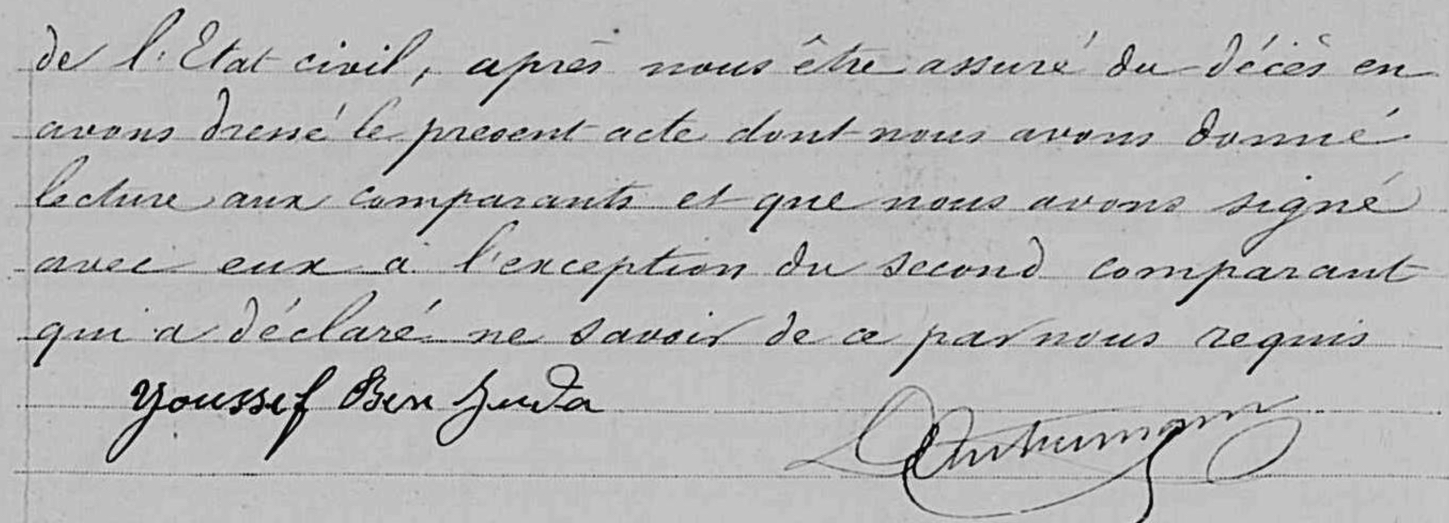 de l'Etat civil, après nous être assuré du décès en
avons dressé le present acte dont nous avons donné
lecture aux comparants et que nous avons signé
avec eux a l'exception du second comparant
qui a déclaré ne savoir de ce par nous requis
Youssef Ben Juda